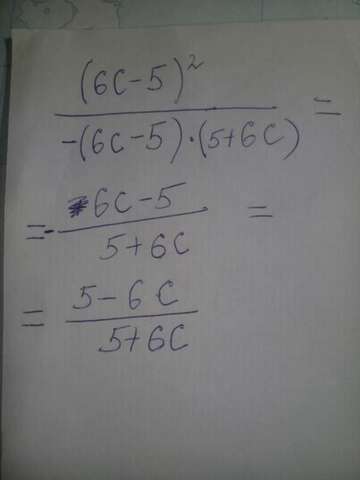 (6c-5)²
-(6c-5)·(5+6c) =
=- 6c-5 =
5+6c
= 5-6c
5+6c